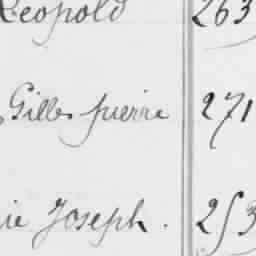 Leopold 263
Gilles pierre 271
ie Joseph. 253